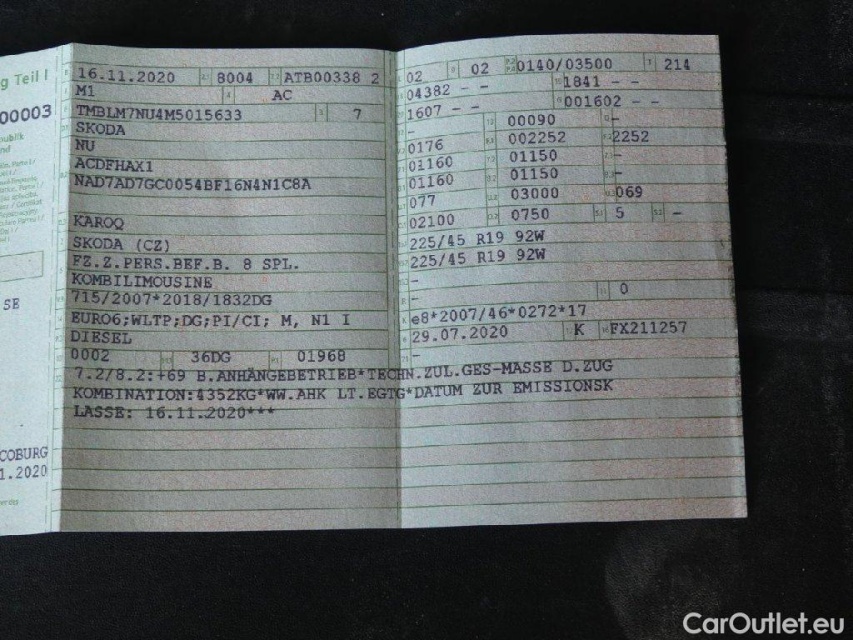 g Teil I
00003
publik
nd
SE
COBURG
1.2020
16.11.2020 8004 ATB00338 2
M1 AC
TMBLM7NU4M5015633 7
SKODA
NU
ACDFHAX1
NAD7AD7GC0054BF16N4N1C8A
KAROQ
SKODA (CZ)
FZ.Z.PERS.BEF.B. 8 SPL.
KOMBILIMOUSINE
715/2007*2018/1832DG
EURO6;WLTP;DG;PI/CI; M, N1 I
DIESEL
0002 36DG 01968
7.2/8.2:+69 B.ANHÄNGEBETRIEB*TECHN.ZUL.GES-MASSE D.ZUG
KOMBINATION:4352KG*WW.AHK LT.EGTG*DATUM ZUR EMISSIONSK
LASSE: 16.11.2020***
02 02 0140/03500 214
04382 - - 1841 - -
1607 - - 001602 - -
- 00090 -
0176 002252 2252
01160 01150 -
01160 01150 -
077 03000 069
02100 0750 5 -
225/45 R19 92W
225/45 R19 92W
-
- 0
e8*2007/46*0272*17
29.07.2020 K FX211257
-
CarOutlet.eu